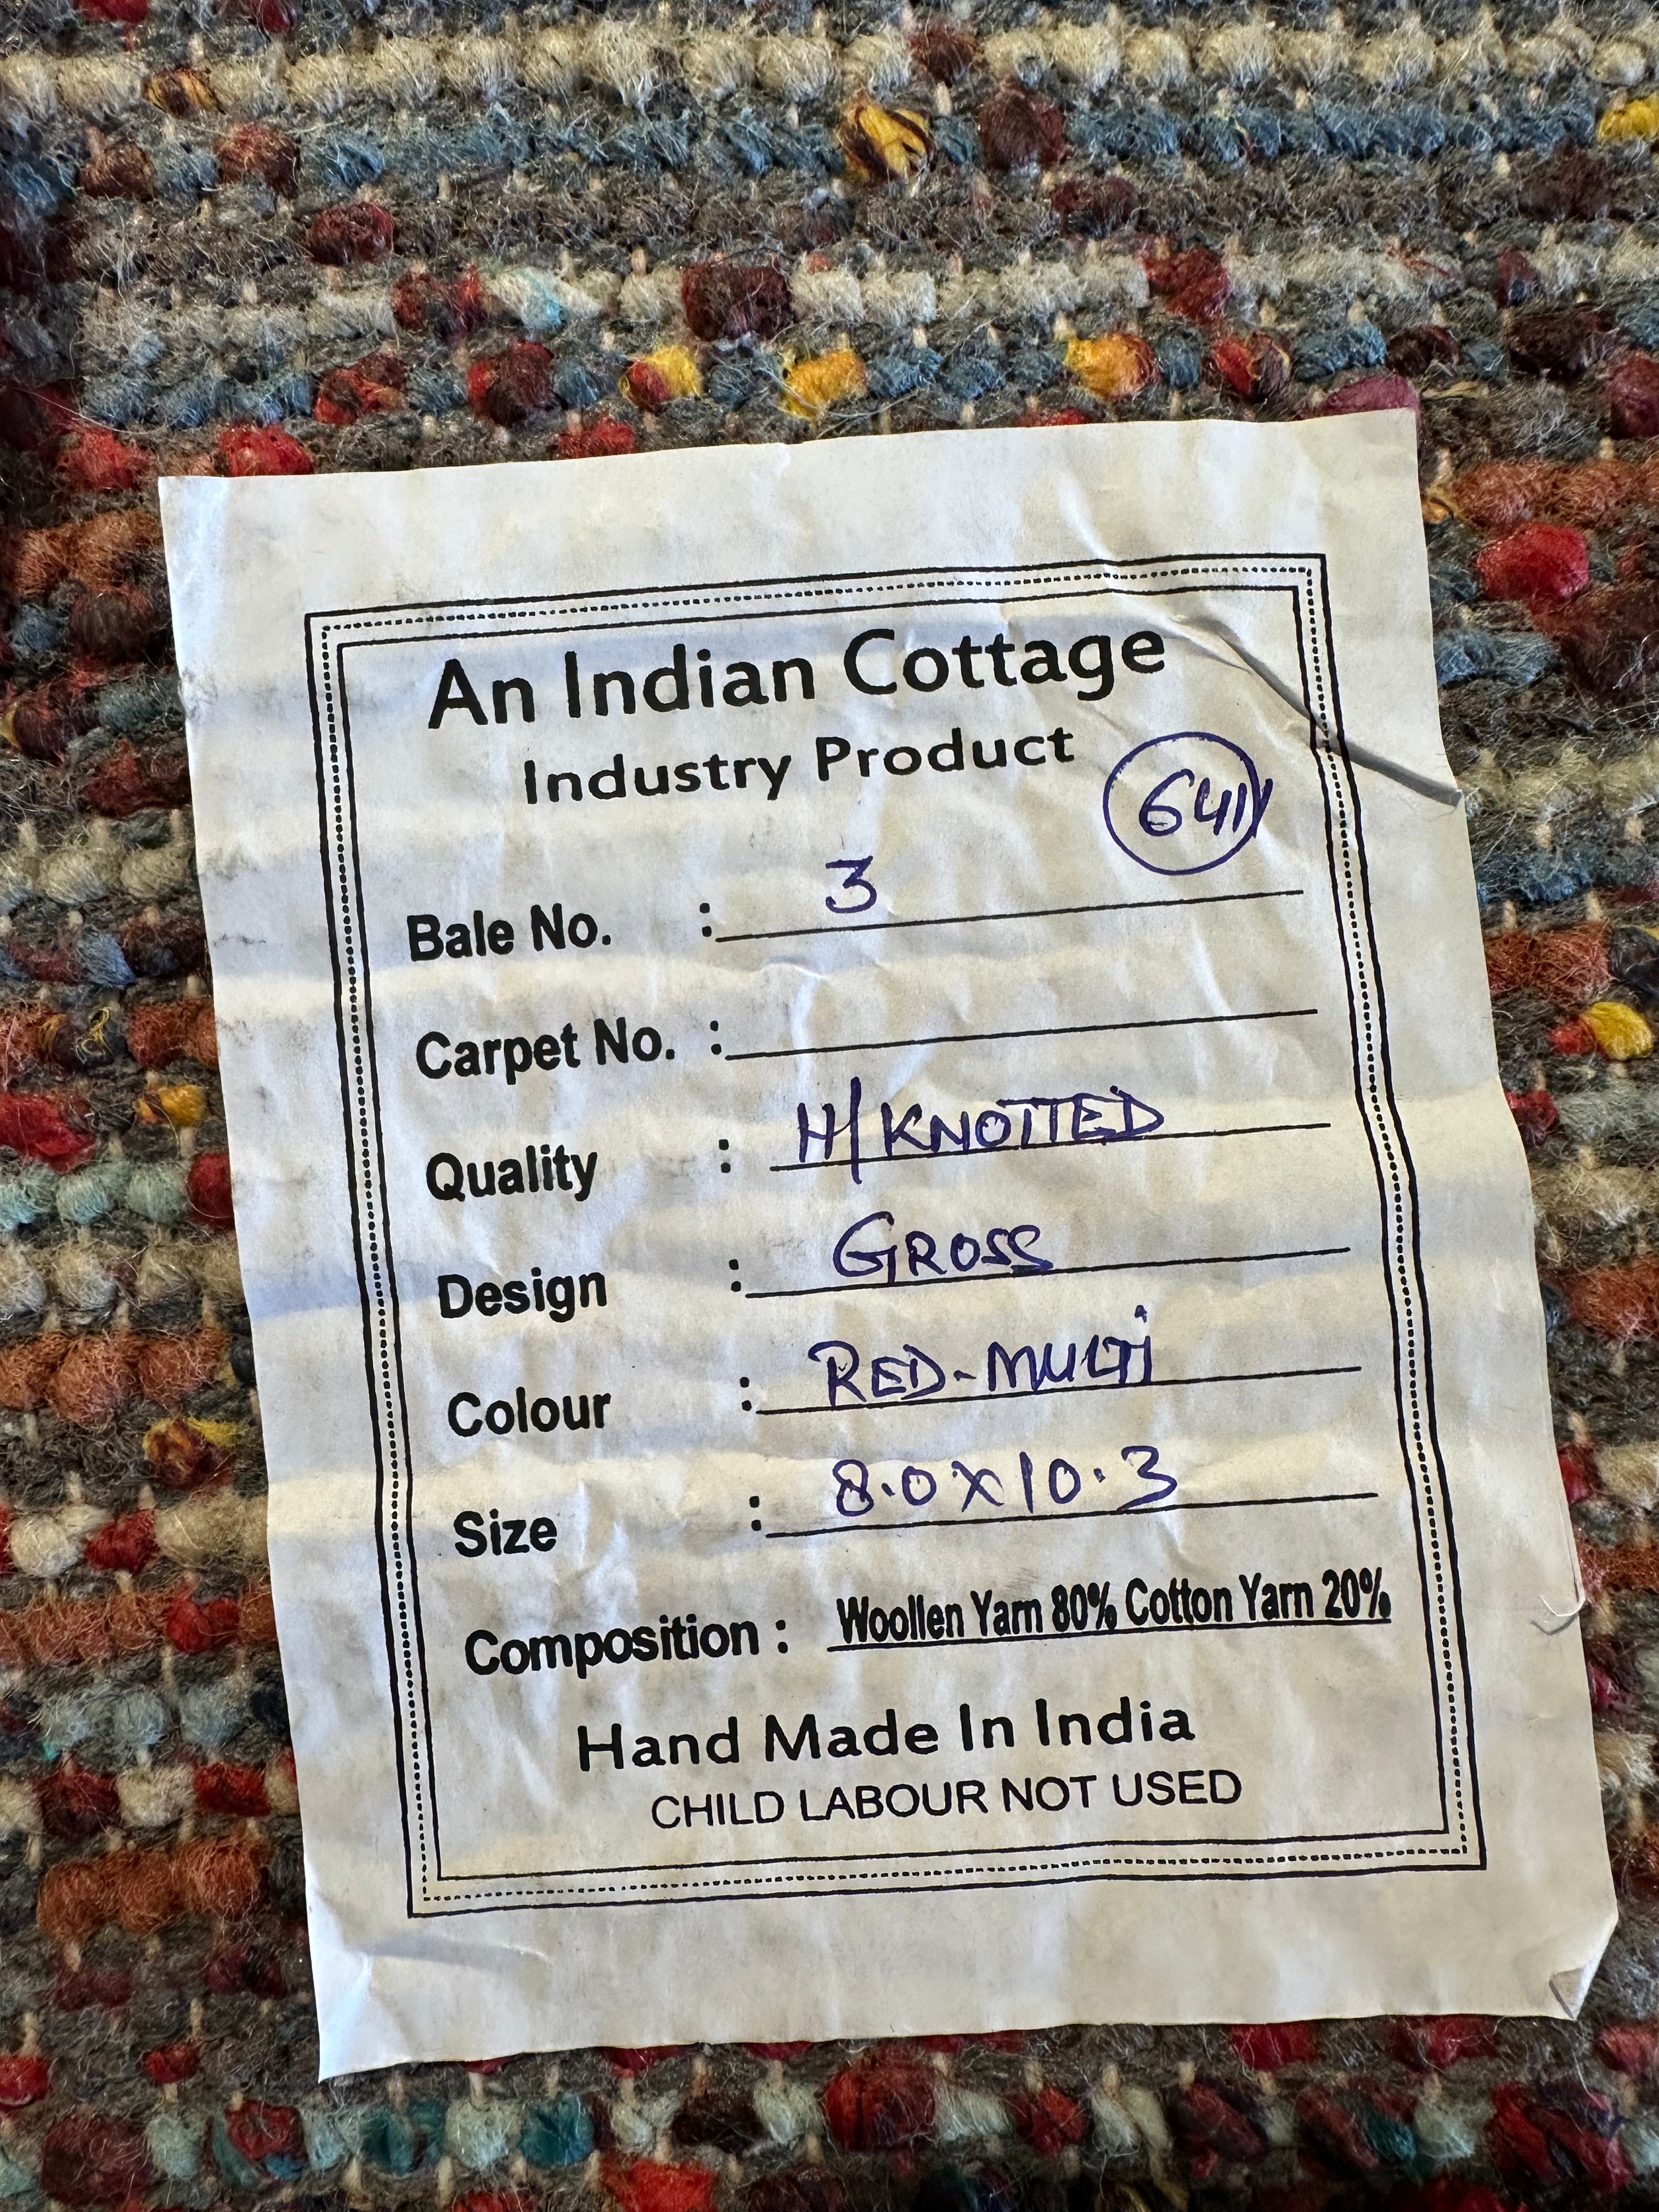 An Indian Cottage
Industry Product
Bale No. : 3
Carpet No. :
Quality : H/KNOTTED
Design : GROSS
Colour : RED-MULTi
Size : 8.0 x 10.3
Composition : Woollen Yarn 80% Cotton Yarn 20%
Hand Made In India
CHILD LABOUR NOT USED